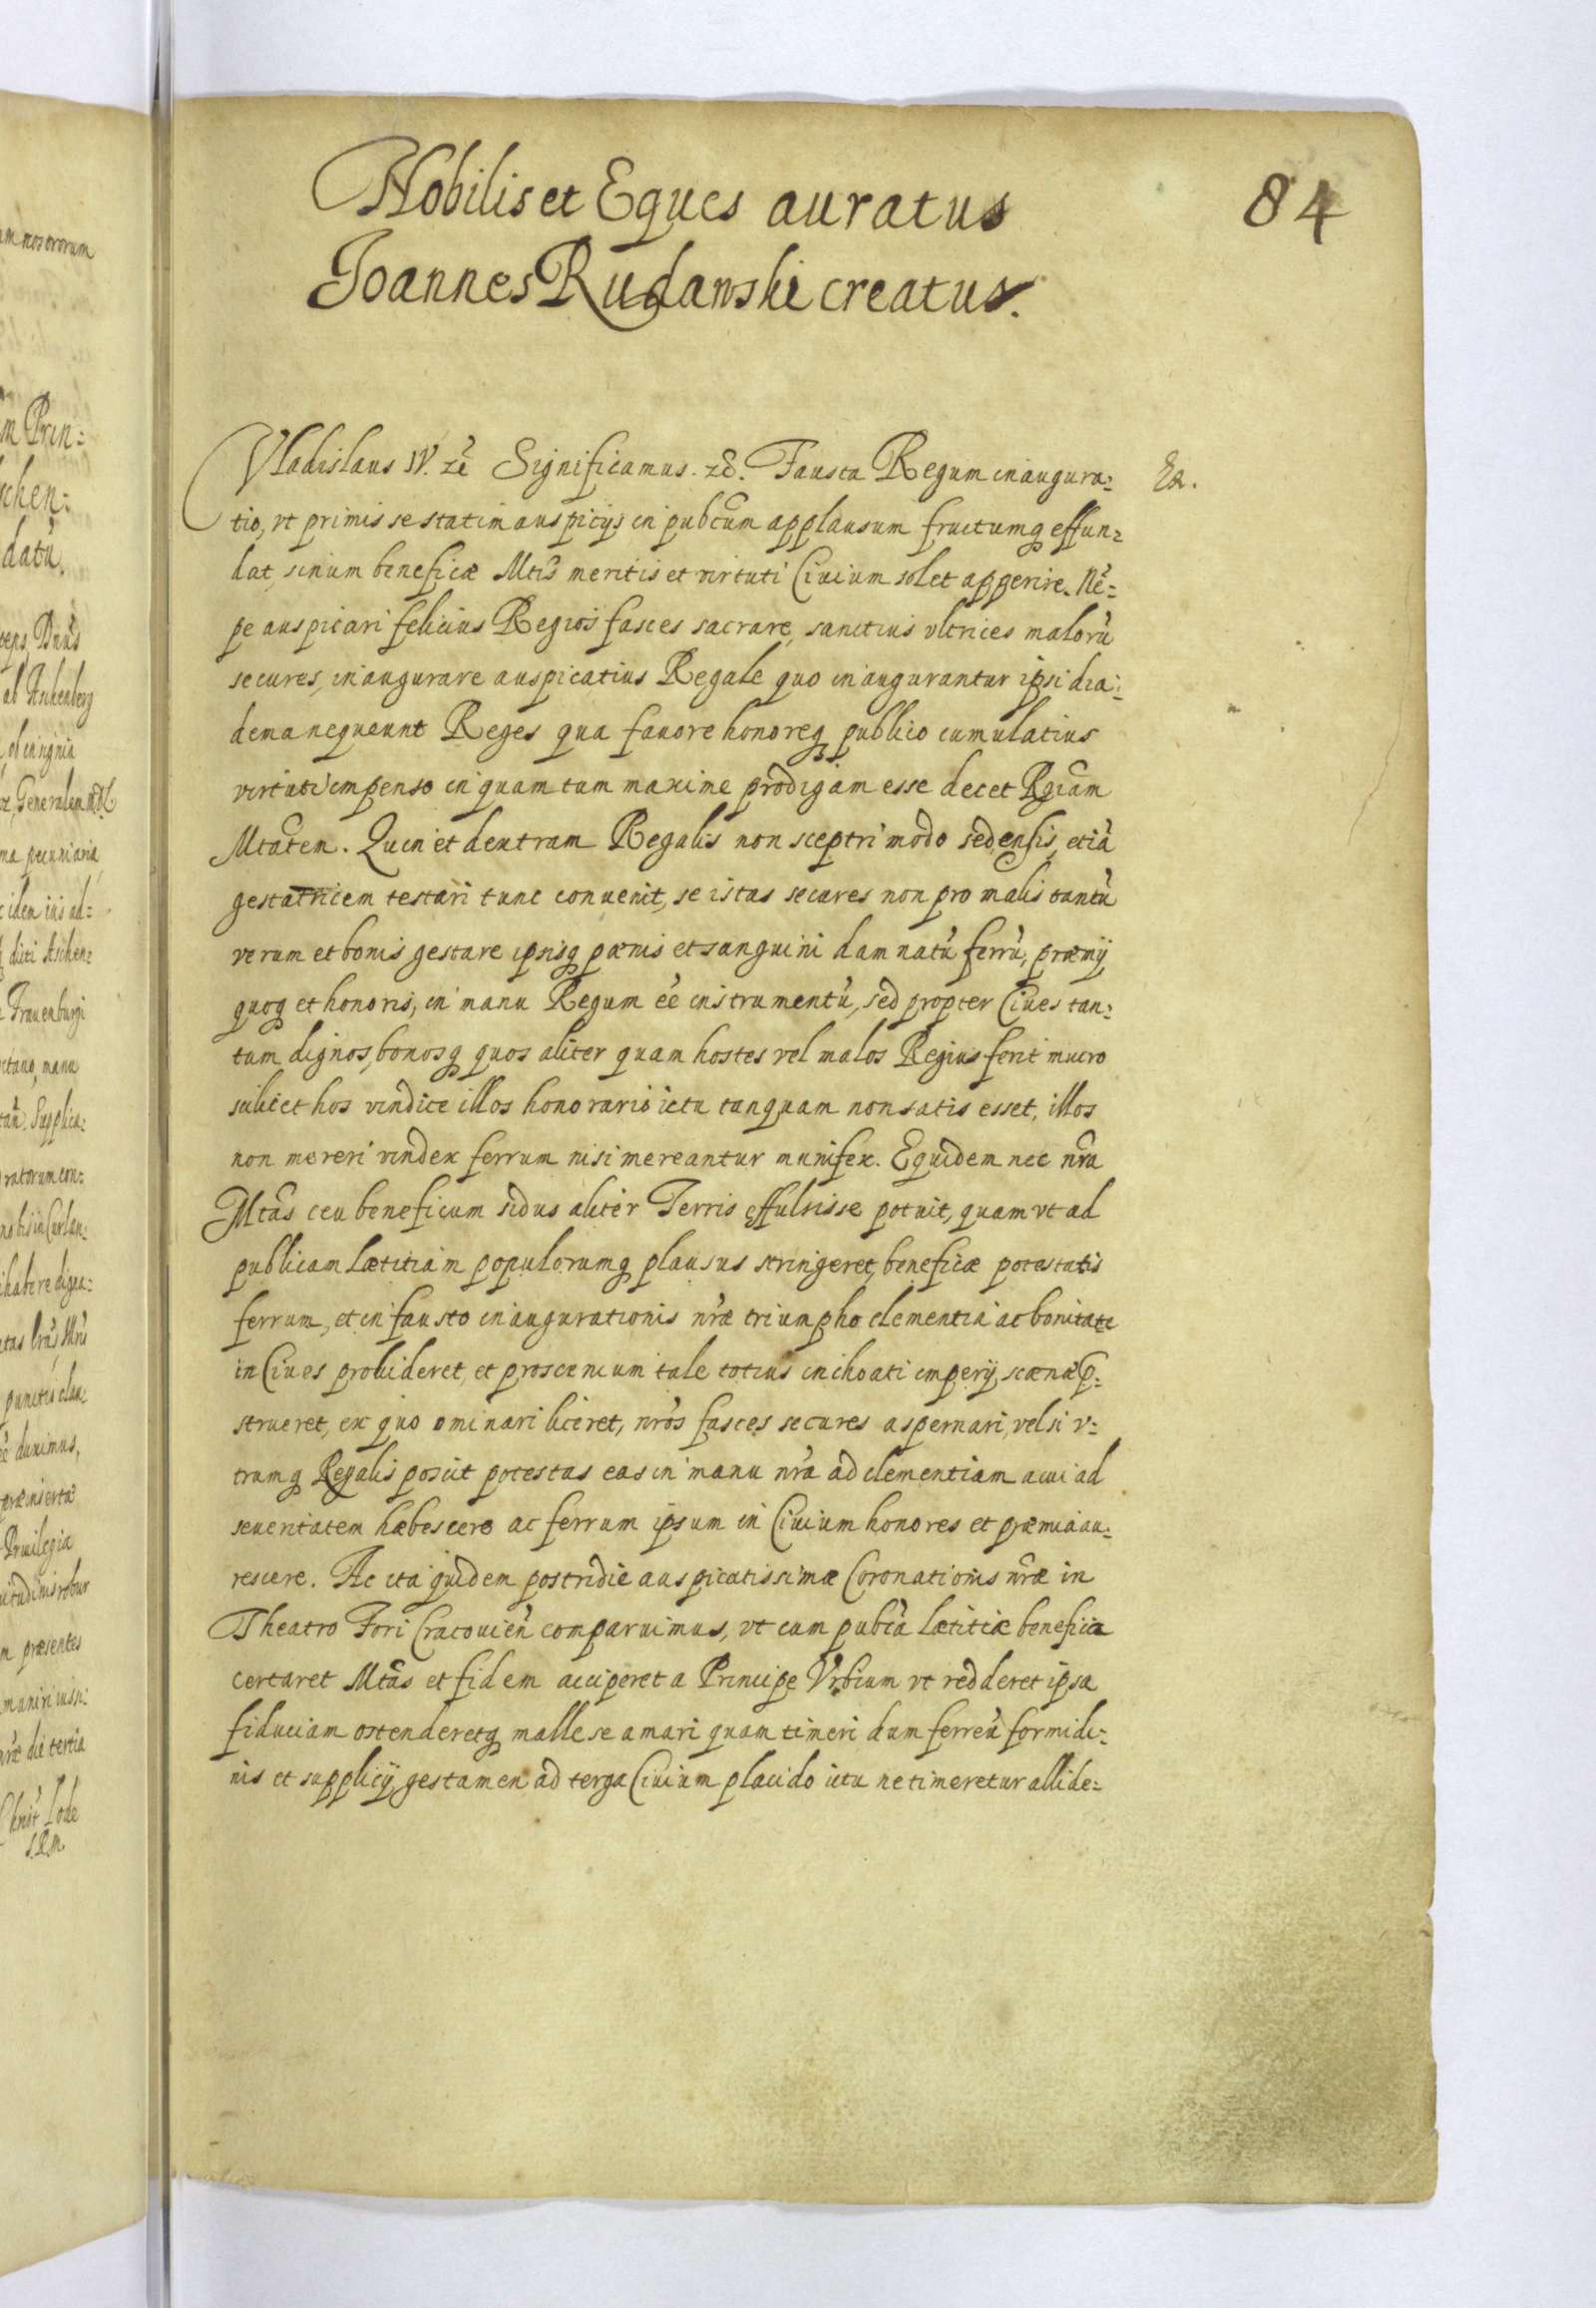 84
Nobilis et Eques auratus
Joannes Rudawski creatus.
Ex.
Vladislaus IV. zc̃ Significamus. zc̃. Fausta Regum inaugura:
tio, vt primis se statim auspicijs in pubcũm applausum fructumq effun:
dat, sinum beneficæ Mtis̃ meritis et virtuti Ciuium solet apperire. Nẽ:
pe auspicari felicius Regios fasces sacrare, sanctius vltrices malorũ
secures, inaugurare auspicatius Regale quo inaugurantur ipsi dia:
dema nequeunt Reges qua fauore honoreq publico cumulatius
virtuti impenso in quam tum maxime prodigam esse decet Rgiãm
Mtatẽm. Quin et dextram Regalis non sceptri modo sed ensis, etiã
gestatricem testari tunc conuenit, se istas secures non pro malis tantũ
verum et bonis gestare ipsisq pœnis et sanguini damnatũ ferrũ, præmij
quoq et honoris, in manu Regum eẽ instrumentũ, sed propter Ciues tan:
tum dignos, bonosq quos aliter quam hostes vel malos Regius ferit mucro
scilicet hos vindice illos honorario ictu tanquam non satis esset, illos
non mereri vindex ferrum nisi mereantur munifex. Equidem nec nrã
Mtãs ceu beneficum sidus aliter Terris effulsisse potuit, quam vt ad
publicam lætitiam populorumq plausus stringeret, beneficæ potestatis
ferrum, et in fausto inaugurationis nræ̃ triumpho clementia ac bonitate
in Ciues prolúderet, et proscenium tale totius inchoati imperij scænæ p:
strueret, ex quo ominari liceret, nrõs fasces secures aspernari, vel si v:
trumq Regalis poscit potestas eas in manu nrã ad clementiam acui ad
seueritatem hæbescere ac ferrum ipsum in Ciuium honores et præmia au:
rescere. Ac ita quidem postridie auspicatissimæ Coronationis nræ̃ in
Theatro Fori Cracouieñ comparuimus, vt cum pubcã lætitia benefica
certaret Mtãs et fidem acciperet a Principe Vrbium vt redderet ipsa
fiduciam ostenderetq malle se amari quam timeri dum ferreũ formidi:
nis et supplicij gestamen ad terga Ciuium placido ictu ne timeretur allide: